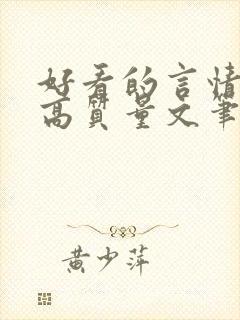 好看的言情
高质量文笔
黄少萍